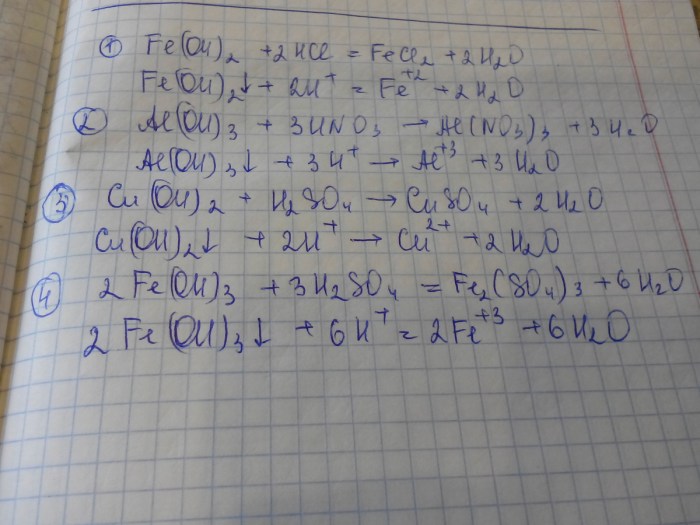 ① Fe(OH)₂ + 2HCl = FeCl₂ + 2H₂O
Fe(OH)₂↓ + 2H⁺ = Fe⁺² + 2H₂O
② Al(OH)₃ + 3HNO₃ → Al(NO₃)₃ + 3H₂O
Al(OH)₃↓ + 3H⁺ → Al⁺³ + 3H₂O
③ Cu(OH)₂ + H₂SO₄ → CuSO₄ + 2H₂O
Cu(OH)₂↓ + 2H⁺ → Cu²⁺ + 2H₂O
④ 2Fe(OH)₃ + 3H₂SO₄ = Fe₂(SO₄)₃ + 6H₂O
2Fe(OH)₃↓ + 6H⁺ = 2Fe⁺³ + 6H₂O